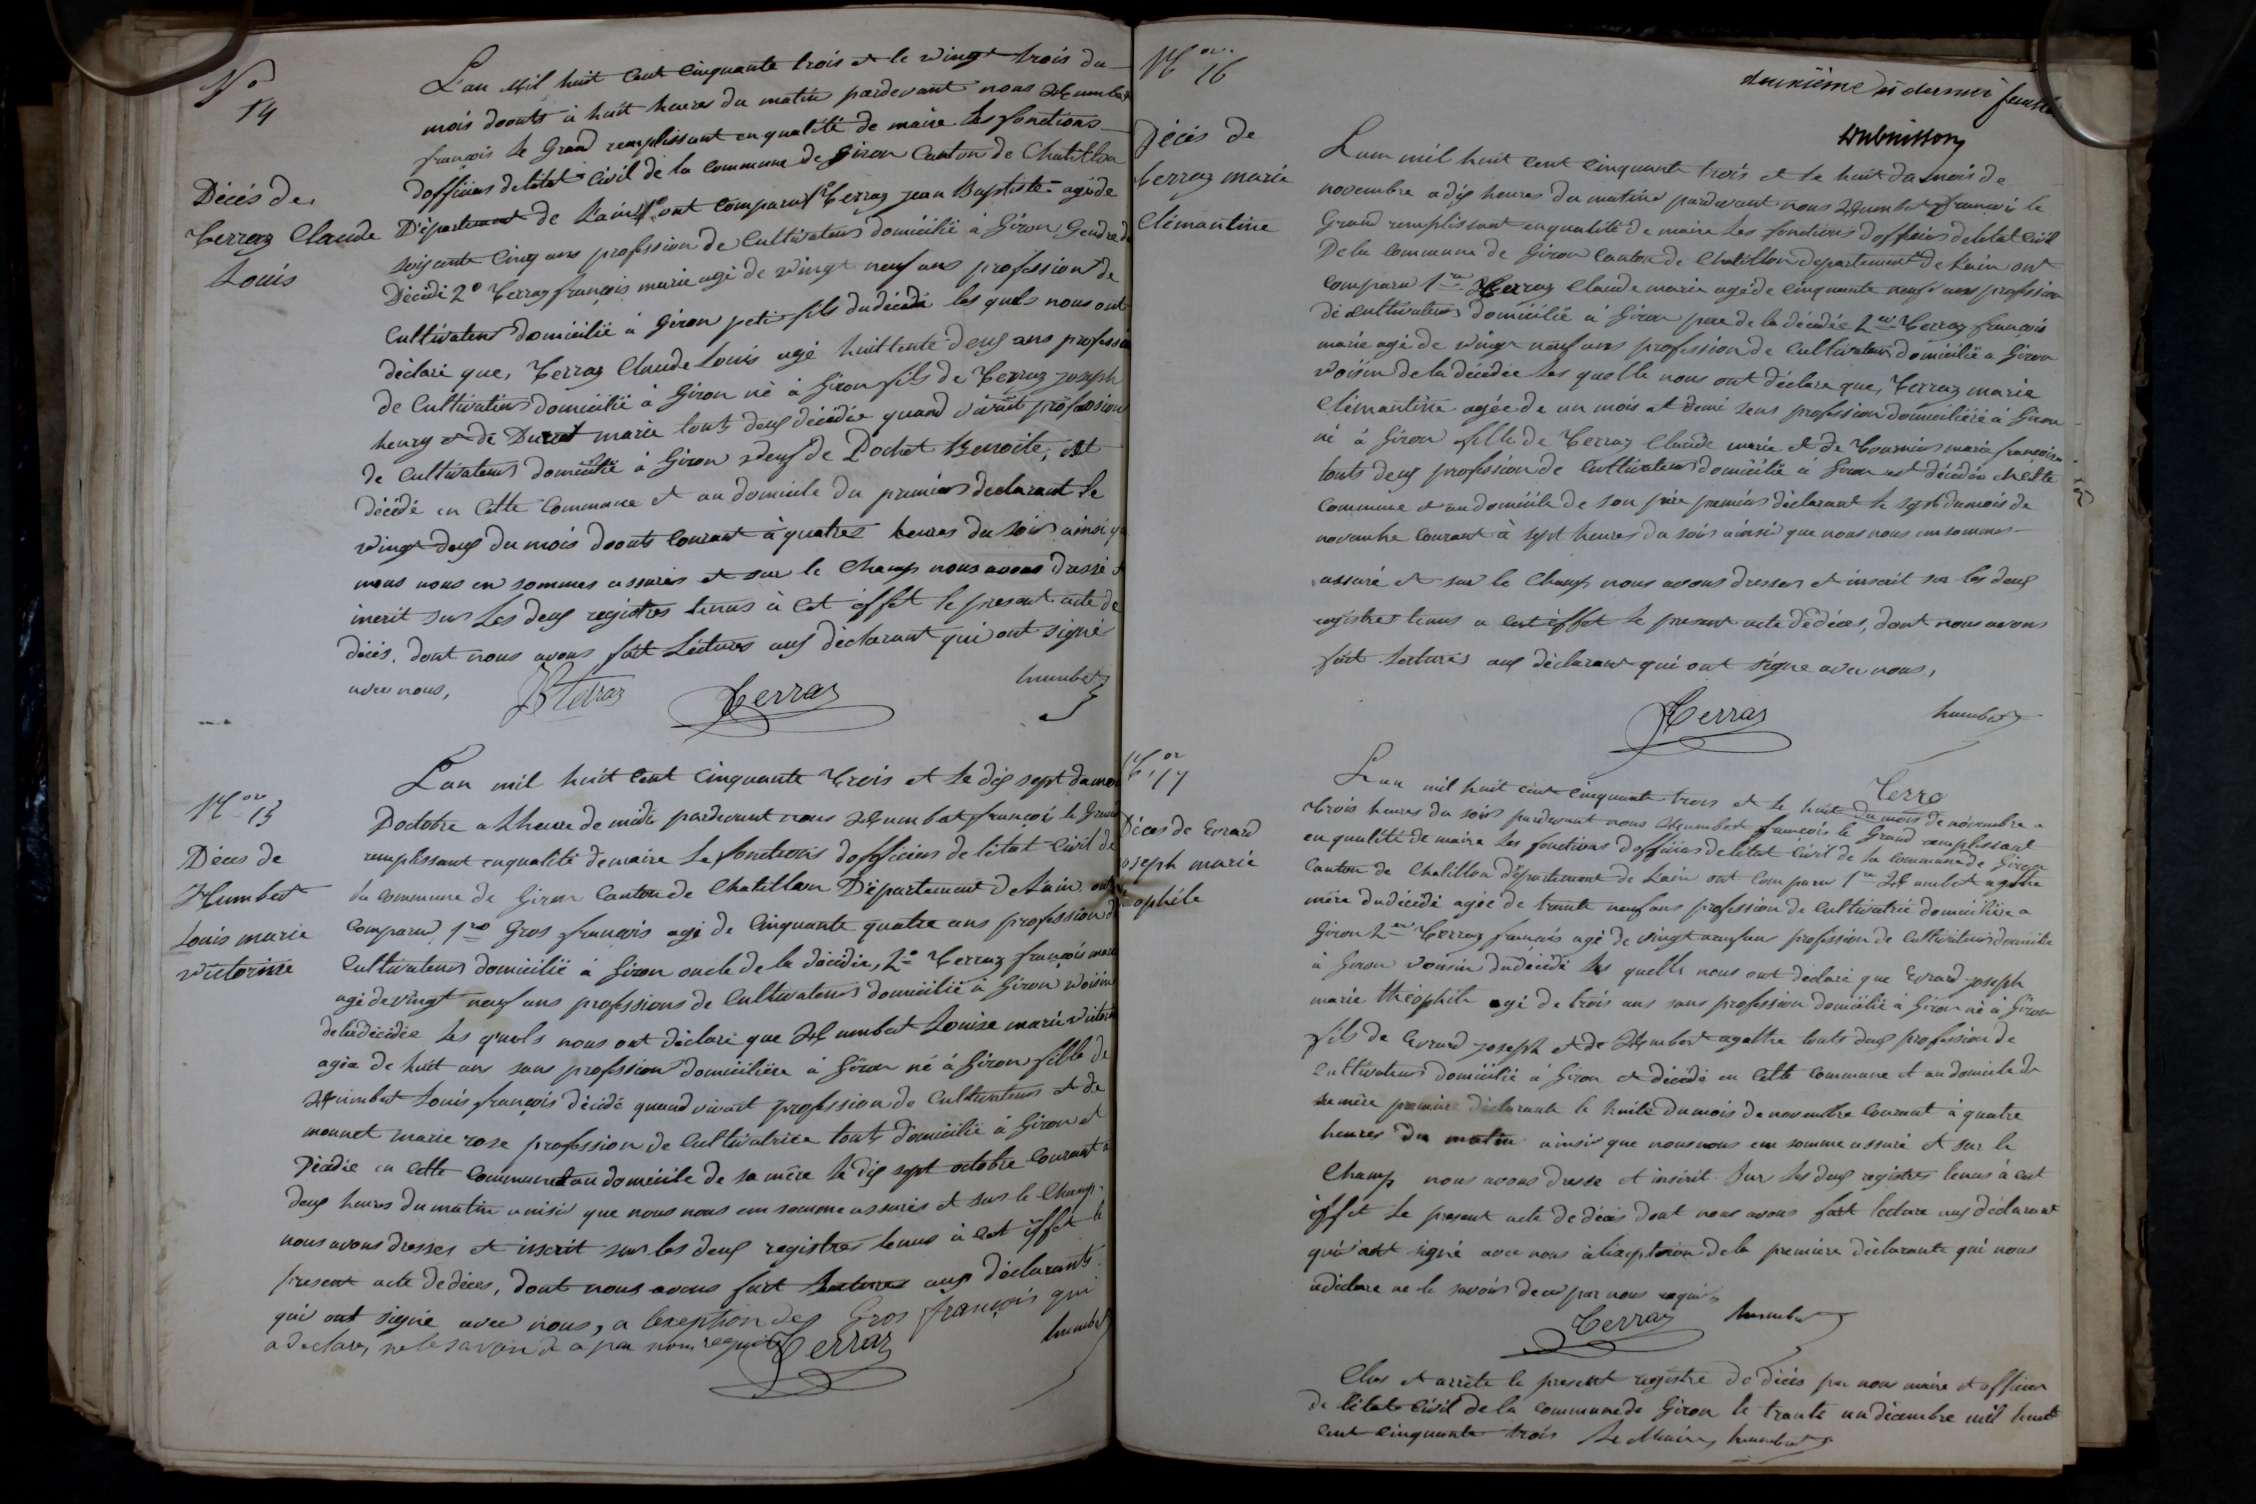 No
14
Décès de
Terraz Claude
Louis
L'an Mil huit Cent Cinquante trois et le vingt trois du
mois daouts à huit heures du matin pardevant nous Humbert
françois le Grand remplissant en qualité de maire les fonctions
dofficiers deletat Civil de la commune de Giron Canton de Chatillon
Département de Lain ont comparut 1o Terraz jean Baptiste agé de
soixante Cinq ans profession de Cultivateurs domicilié à Giron Gendre du
Décédé 2o Terraz françois marie agé de vingt neuf ans profession de
Cultivateurs domicilié à Giron petit fils du décédé les quels nous ont
déclaré que, Terraz Claude Louis agé huittente deux ans profession
de Cultivateurs domicilié à Giron né à Giron fils de Terraz joseph
henry et de Durret marie touts deux décédé quand vivait profession
de Cultivateurs domicilié à Giron veuf de Pochet Benoite, est
décédé en Cette Commune et au domicile du premier declarant le
vingt deux du mois daouts Courant à quatres heures du soir ainsi que
nous nous en sommes assurés et sur le Champ nous avons dressé et
inscrit sur Les deux registres tenus à Cet éffet le present acte de
décès, dont nous avons fait Lectures aux déclarant qui ont signé
avec nous,
JB Terraz Terraz humbert
No 15
Décès de
Humbert
Louis marie
victorine
L'an mil huit Cent Cinquante Trois et le dix sept du mois
Doctobre a Lheure de midi pardevant nous Humbert françoi le Grand
remplissant en qualité de maire Le fonctions dofficiers de létat Civil de
la commune de Giron Canton de Chatillon Département de Lain ont
comparu 1ro Gros françois agé de Cinquante quatre ans profession de
Cultivateurs domicilié à Giron oncle de la décédée, 2o Terraz françois marie
agé de vingt neuf ans professions de Cultivateurs domicilié à Giron voisin
de la décédée les quels nous ont déclaré que Humbert Louise marie victorine
agée de huit ans sans profession domiciliée à Giron né à Giron fille de
Humbert Louis françois décédé quand vivait profession de Cultivateurs et de
mounet marie rose profession de Cultivatrice touts domicilié à Giron et
Décédée en Cette Commune et au domicile de sa mère le dix sept octobre Courant a
deux heures du matin ainsi que nous nous em somme assurés et sur le Champ
nous avons dresses et inscrit sur les deux registres tenus à Cet éffet le
present acte de décès, dont nous avons fait Lectures aux déclarants
qui ont signé avec nous, a lexeption des Gros françois qui
a declarer ne le savoir de a par nous requis
Terraz humbert
No 16
Décès de
Terraz marie
Clémantine
deuxième et dernier feuillet
Dubuisson
L'an mil huit Cent Cinquante trois et le huit du mois de
novembre a dix heures du matin pardevant nous Humbert françois le
Grand remplissant en qualité de maire Les fonctions dofficiers deletat Civil
De la commune de Giron Canton de Chatillon departement de Lain ont
comparu 1er Terraz Claude marie agé de cinquante neuf ans profession
de Cultivateurs domicilié à Giron pere de la décédée 2em Terraz françois
marie agé de vingt neuf ans profession de Cultivateurs domicilié a Giron
voisin de la décédée les quells nous ont déclare que, Terraz marie
Clémantine agée de un mois et demi sens profession domiciliéé à Giron
né à Giron fille de Terraz Claude marie et de Tournier marie françoise
touts deux profession de Cultivateurs domicilié à Giron est décédée en Cette
commune et au domicile de son père premier déclarant le sept du mois de
novembre courant à sept heures du soir ainsi que nous nous em sommes
assuré et sur le Champ nous avons dresser et inscrit sur les deux
registres tenus a cet éffet le present acte de décès, dont nous avons
fait lectures aux déclarant qui ont signe avec nous,
Terraz humbert
Terra
No 17
Décès de Evrard
joseph marie
téophile
L'an mil huit cent cinquante trois et le huit du mois de novembre a
Trois heures du soir pardevant nous Humbert françois le Grand remplissant
en qualité de maire les fonctions dofficiers de létat Civil de la commune de Giron
Canton de Chatillon département de Lain ont comparu 1re Humbert agathe
mère du décédé agée de trente neuf ans profession de Cultivatrice domiciliée a
Giron 2em Terraz françois agé de vingt neuf ans profession de Cultivateurs domicilié
à Giron voisin du décédé les quells nous ont déclaré que Evrard joseph
marie théophile agé de trois ans sans profession domicilié à Giron né à Giron
fils de Evrard joseph et de Humbert agathe touts deux profession de
Cultivateurs domicilié à Giron et décédé en Cette commune et au domicile de
sa mère première déclarante le huit du mois de novembre Courant à quatre
heures du matin ainsi que nous nous em somme assuré et sur le
Champ nous avons dresse et inscrit sur les deux registres tenus à cet
éffet le present acte de décès dont nous avons fait lecture aux déclarant
qui ont signé avec nous à lexeption de la première déclarante qui nous
a déclare ne le savoir de ce par nous requis
Terraz humbert
Clos et arrète le present registre de décès par nous maire et officier
de létat Civil de la commune de Giron le trante un décembre mil huit
cent cinquante trois Le Maire, humbert